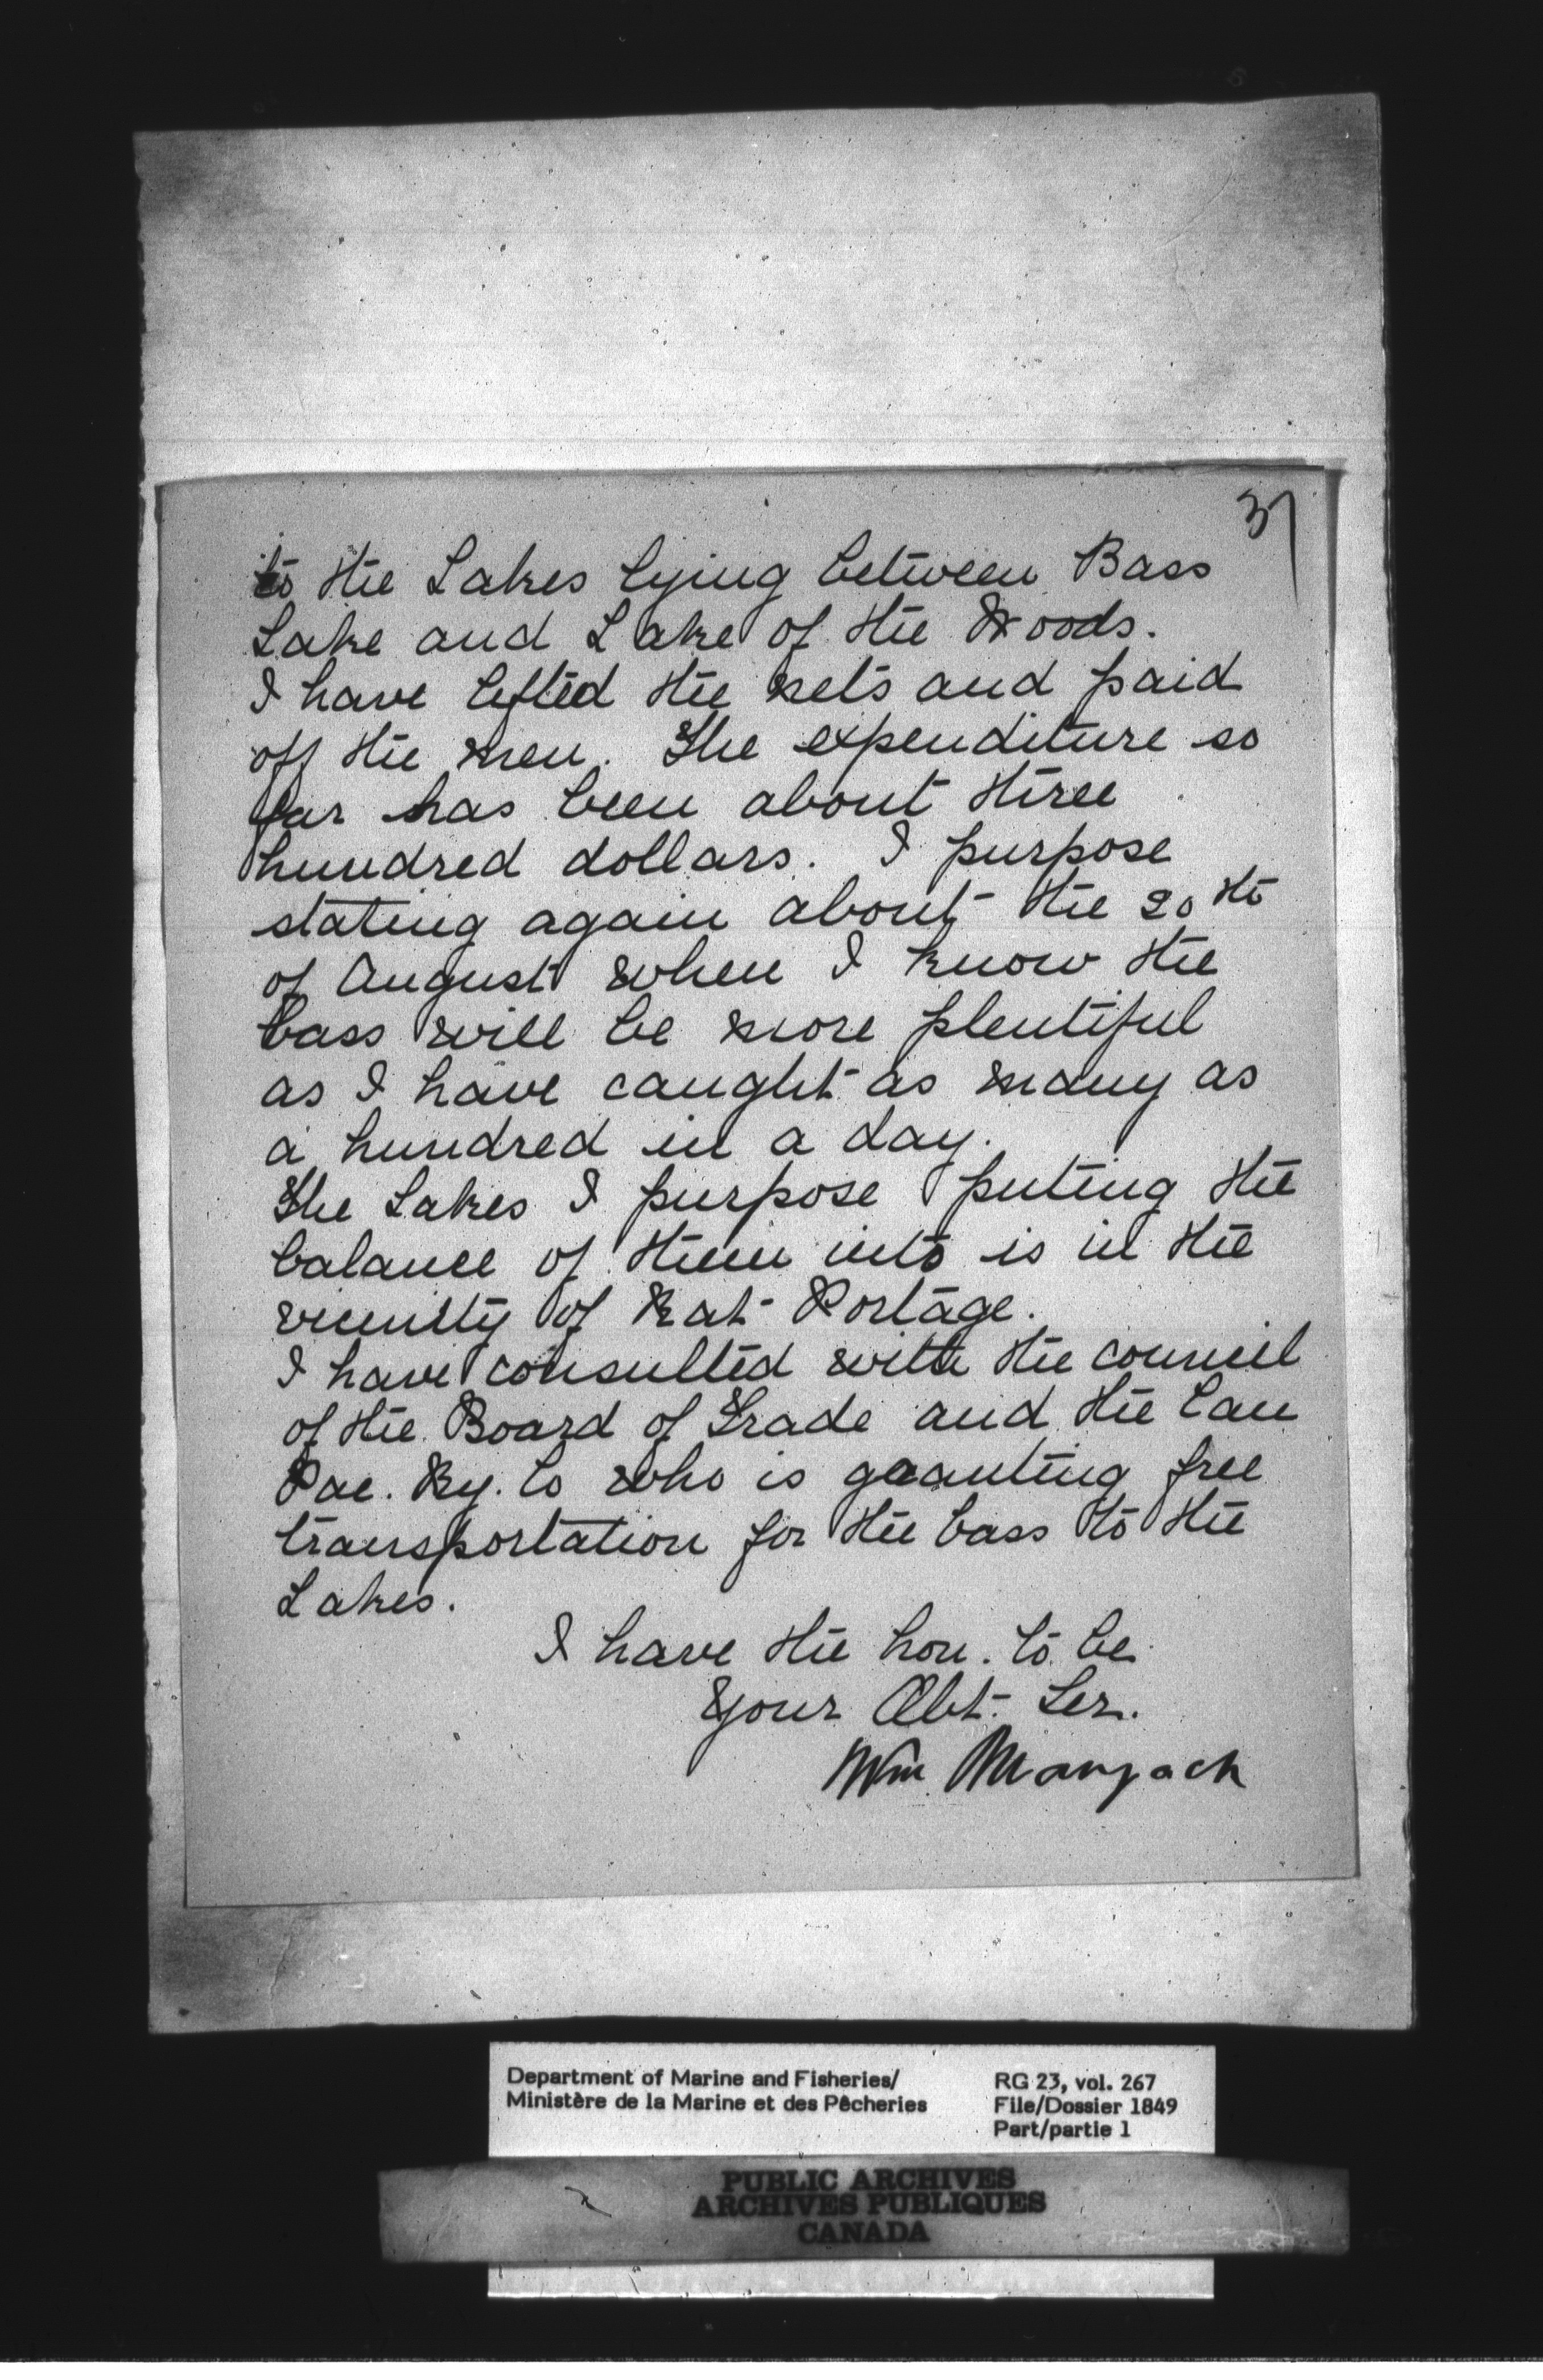 37
to the Lakes lying between Bass
Lake and Lake of the Woods.
I have lifted the nets and paid
off the men. The expenditure so
far has been about three
hundred dollars. I purpose
stating again about the 20th
of August when I know the
bass will be more plentiful
as I have caught as many as
a hundred in a day.
The Lakes I purpose puting the
balance of them into is in the
vicinity of Rat Portage.
I have consulted with the council
of the Board of Trade and the Can
Pac. Ry. Co who is graanting free
transportation for the bass to the
Lakes.
I have the hon. to be
Your Obt. Ser.
Wm
Department of Marine and Fisheries/
Ministère de la Marine et des Pêcheries
RG 23, vol. 267
File/Dossier 1849
Part/partie 1
PUBLIC ARCHIVES
ARCHIVES PUBLIQUES
CANADA